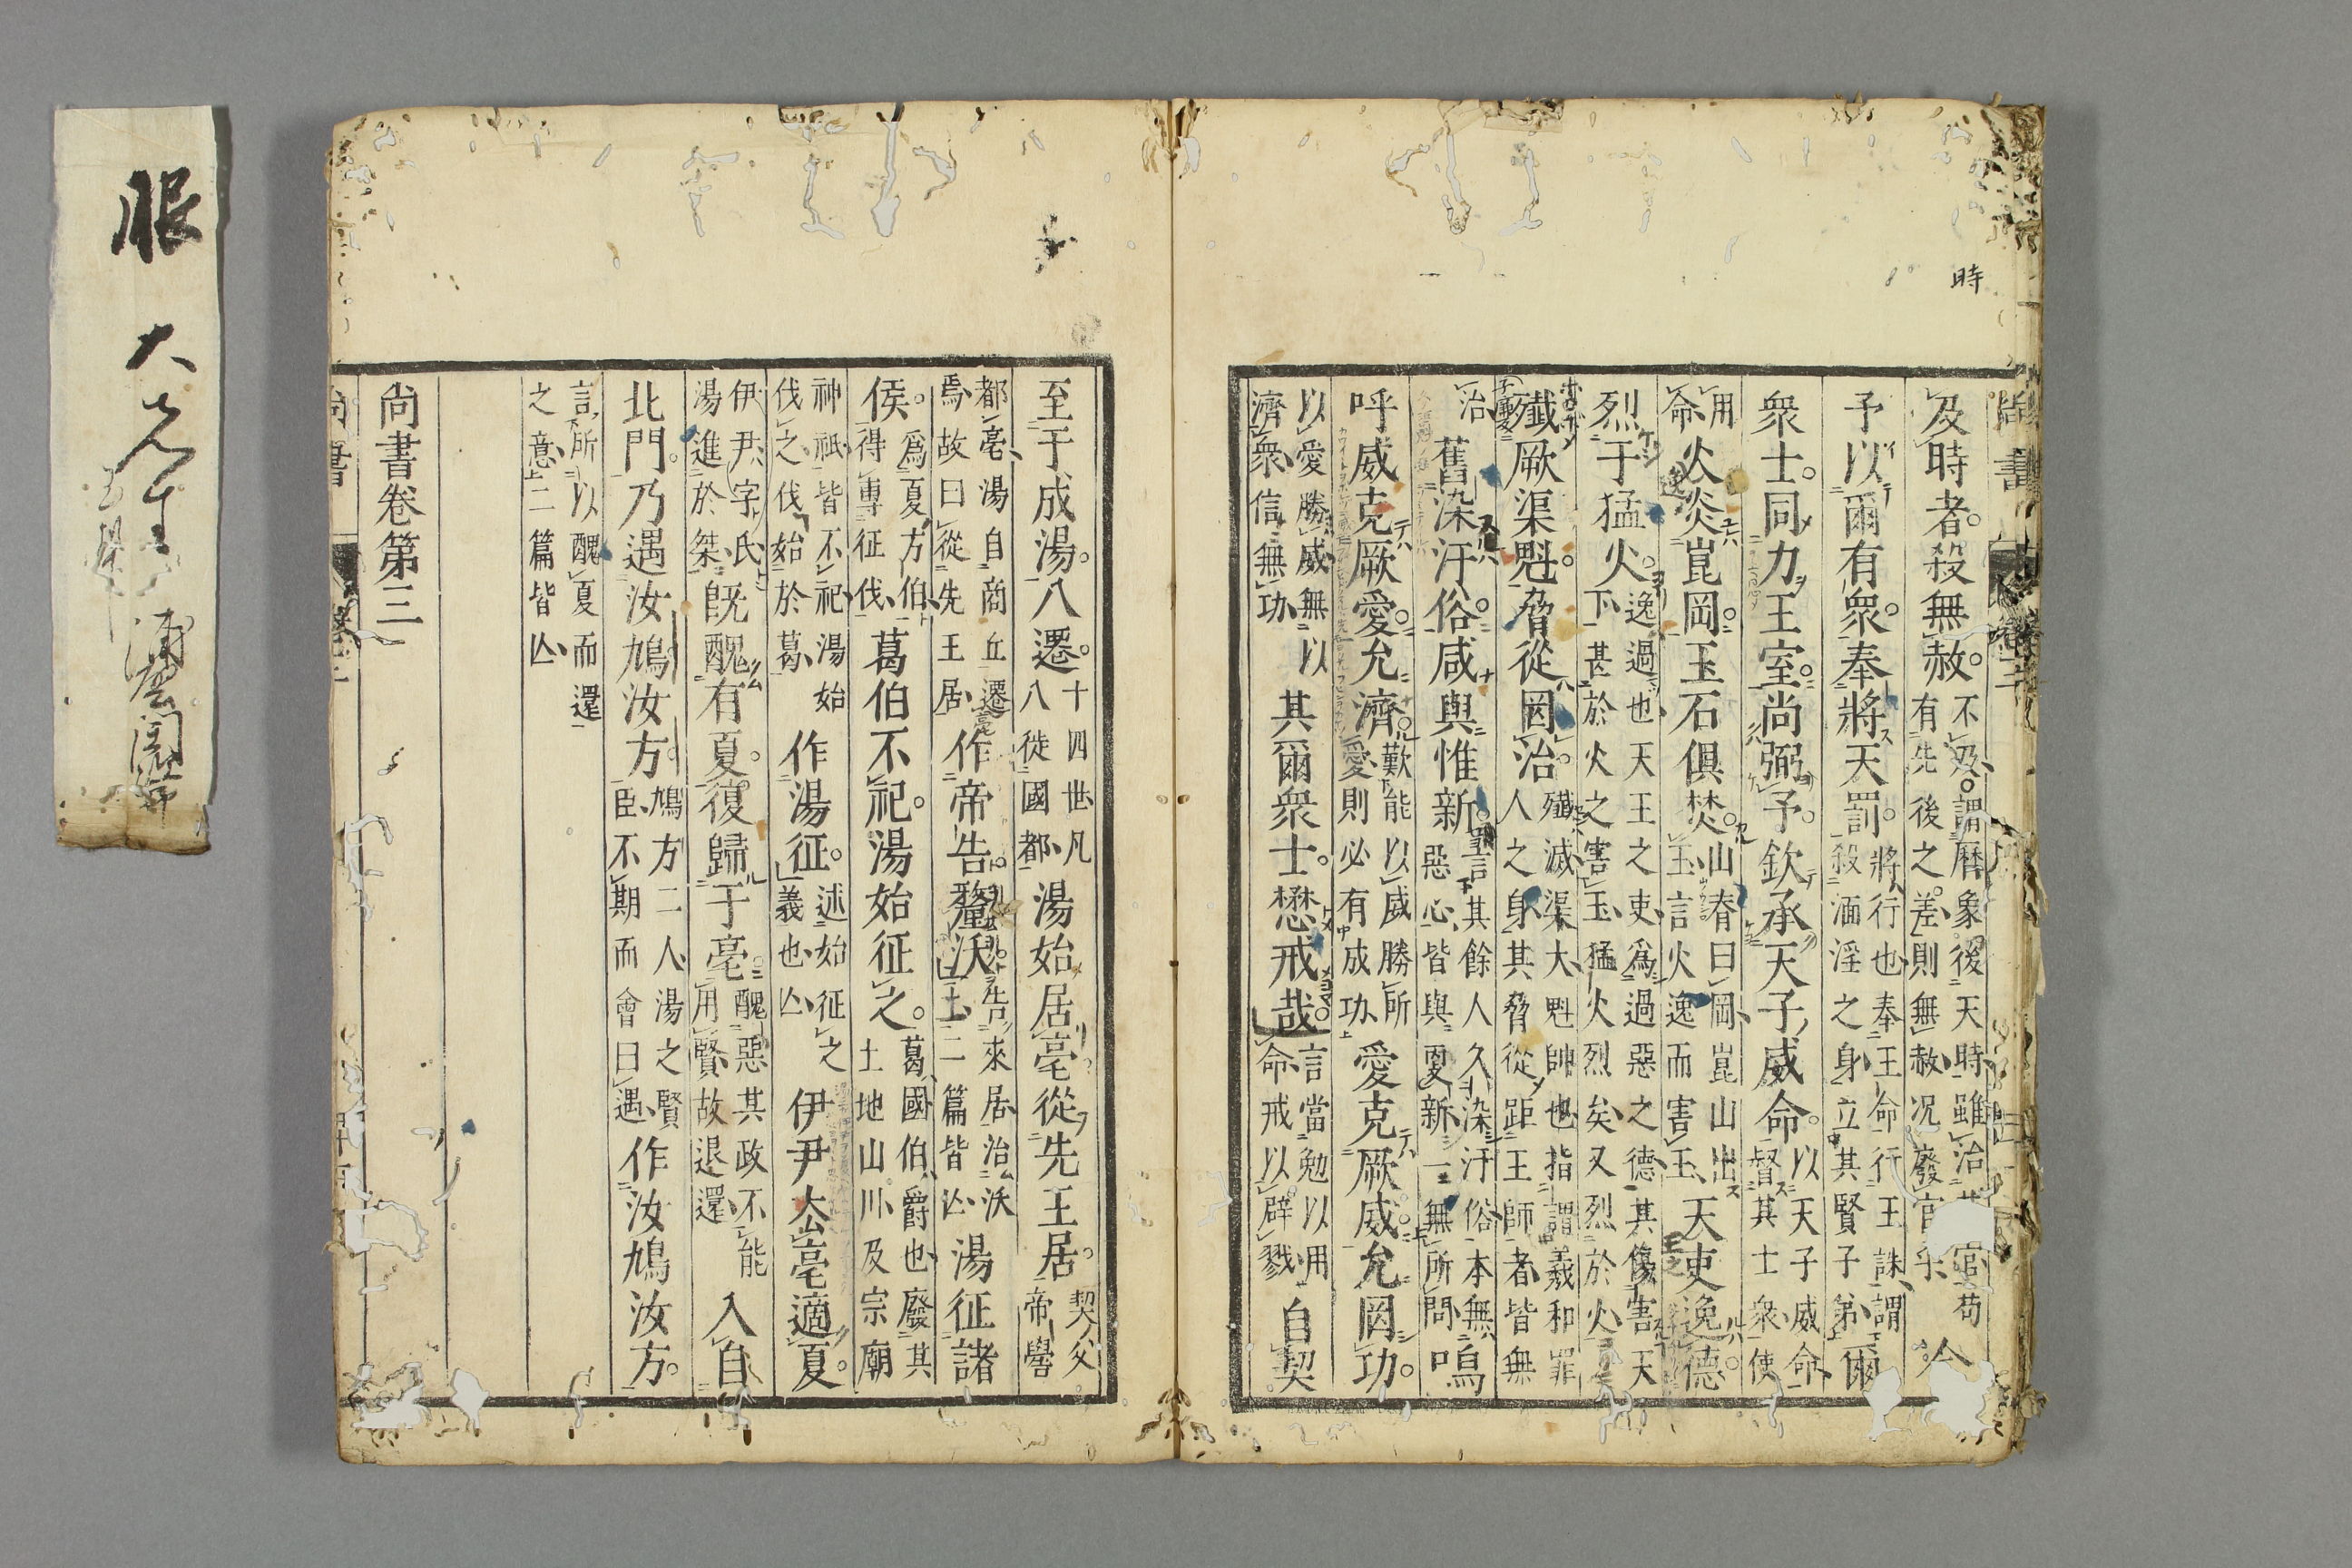 時
及時者殺無赦不及謂曆象後天時雖治其官苟
有先後之差則無赦况廢官乎今
予以爾有衆奉將天罰將行也奉王命行王誅謂
殺湎淫之身立其賢子弟爾
衆士同力王室尚弼予欽承天子威命以天子威命
督其士衆使
用命火炎崑岡玉石俱焚山脊曰岡崑山出
玉言火逸而害玉天吏逸德
烈于猛火逸過也天王之吏爲過惡之德其傷害天
下甚於火之害玉猛火烈矣又烈於火
殲厥渠魁脅從罔治殲滅渠大魁帥也指謂羲和罪
人之身其脅從距王師者皆無
治舊染汙俗咸與惟新言其餘人久染汙俗本無
惡心皆與更新一無所問嗚
呼威克厥愛允濟歎能以威勝所
愛則必有成功愛克厥威允罔功
以愛勝威無以
濟衆信無功其爾衆士懋戒哉言當勉以用
命戒以辟戮自契
至于成湯八遷十四世凡
八徙國都湯始居亳從先王居契父
帝嚳
都亳湯自商丘遷
焉故曰從先王居作帝告釐沃告來居治沃
土二篇皆亾湯征諸
侯爲夏方伯
得專征伐葛伯不祀湯始征之葛國伯爵也廢其
土地山川及宗廟
神祇皆不祀湯始
伐之伐始於葛作湯征述始征之
義也亾伊尹去亳適夏
伊尹字氏
湯進於桀既醜有夏復歸于亳醜惡其政不能
用賢故退還入自
北門乃遇汝鳩汝方鳩方二人湯之賢
臣不期而會曰遇作汝鳩汝方
言所以醜夏而還
之意二篇皆亾
尚書卷第三